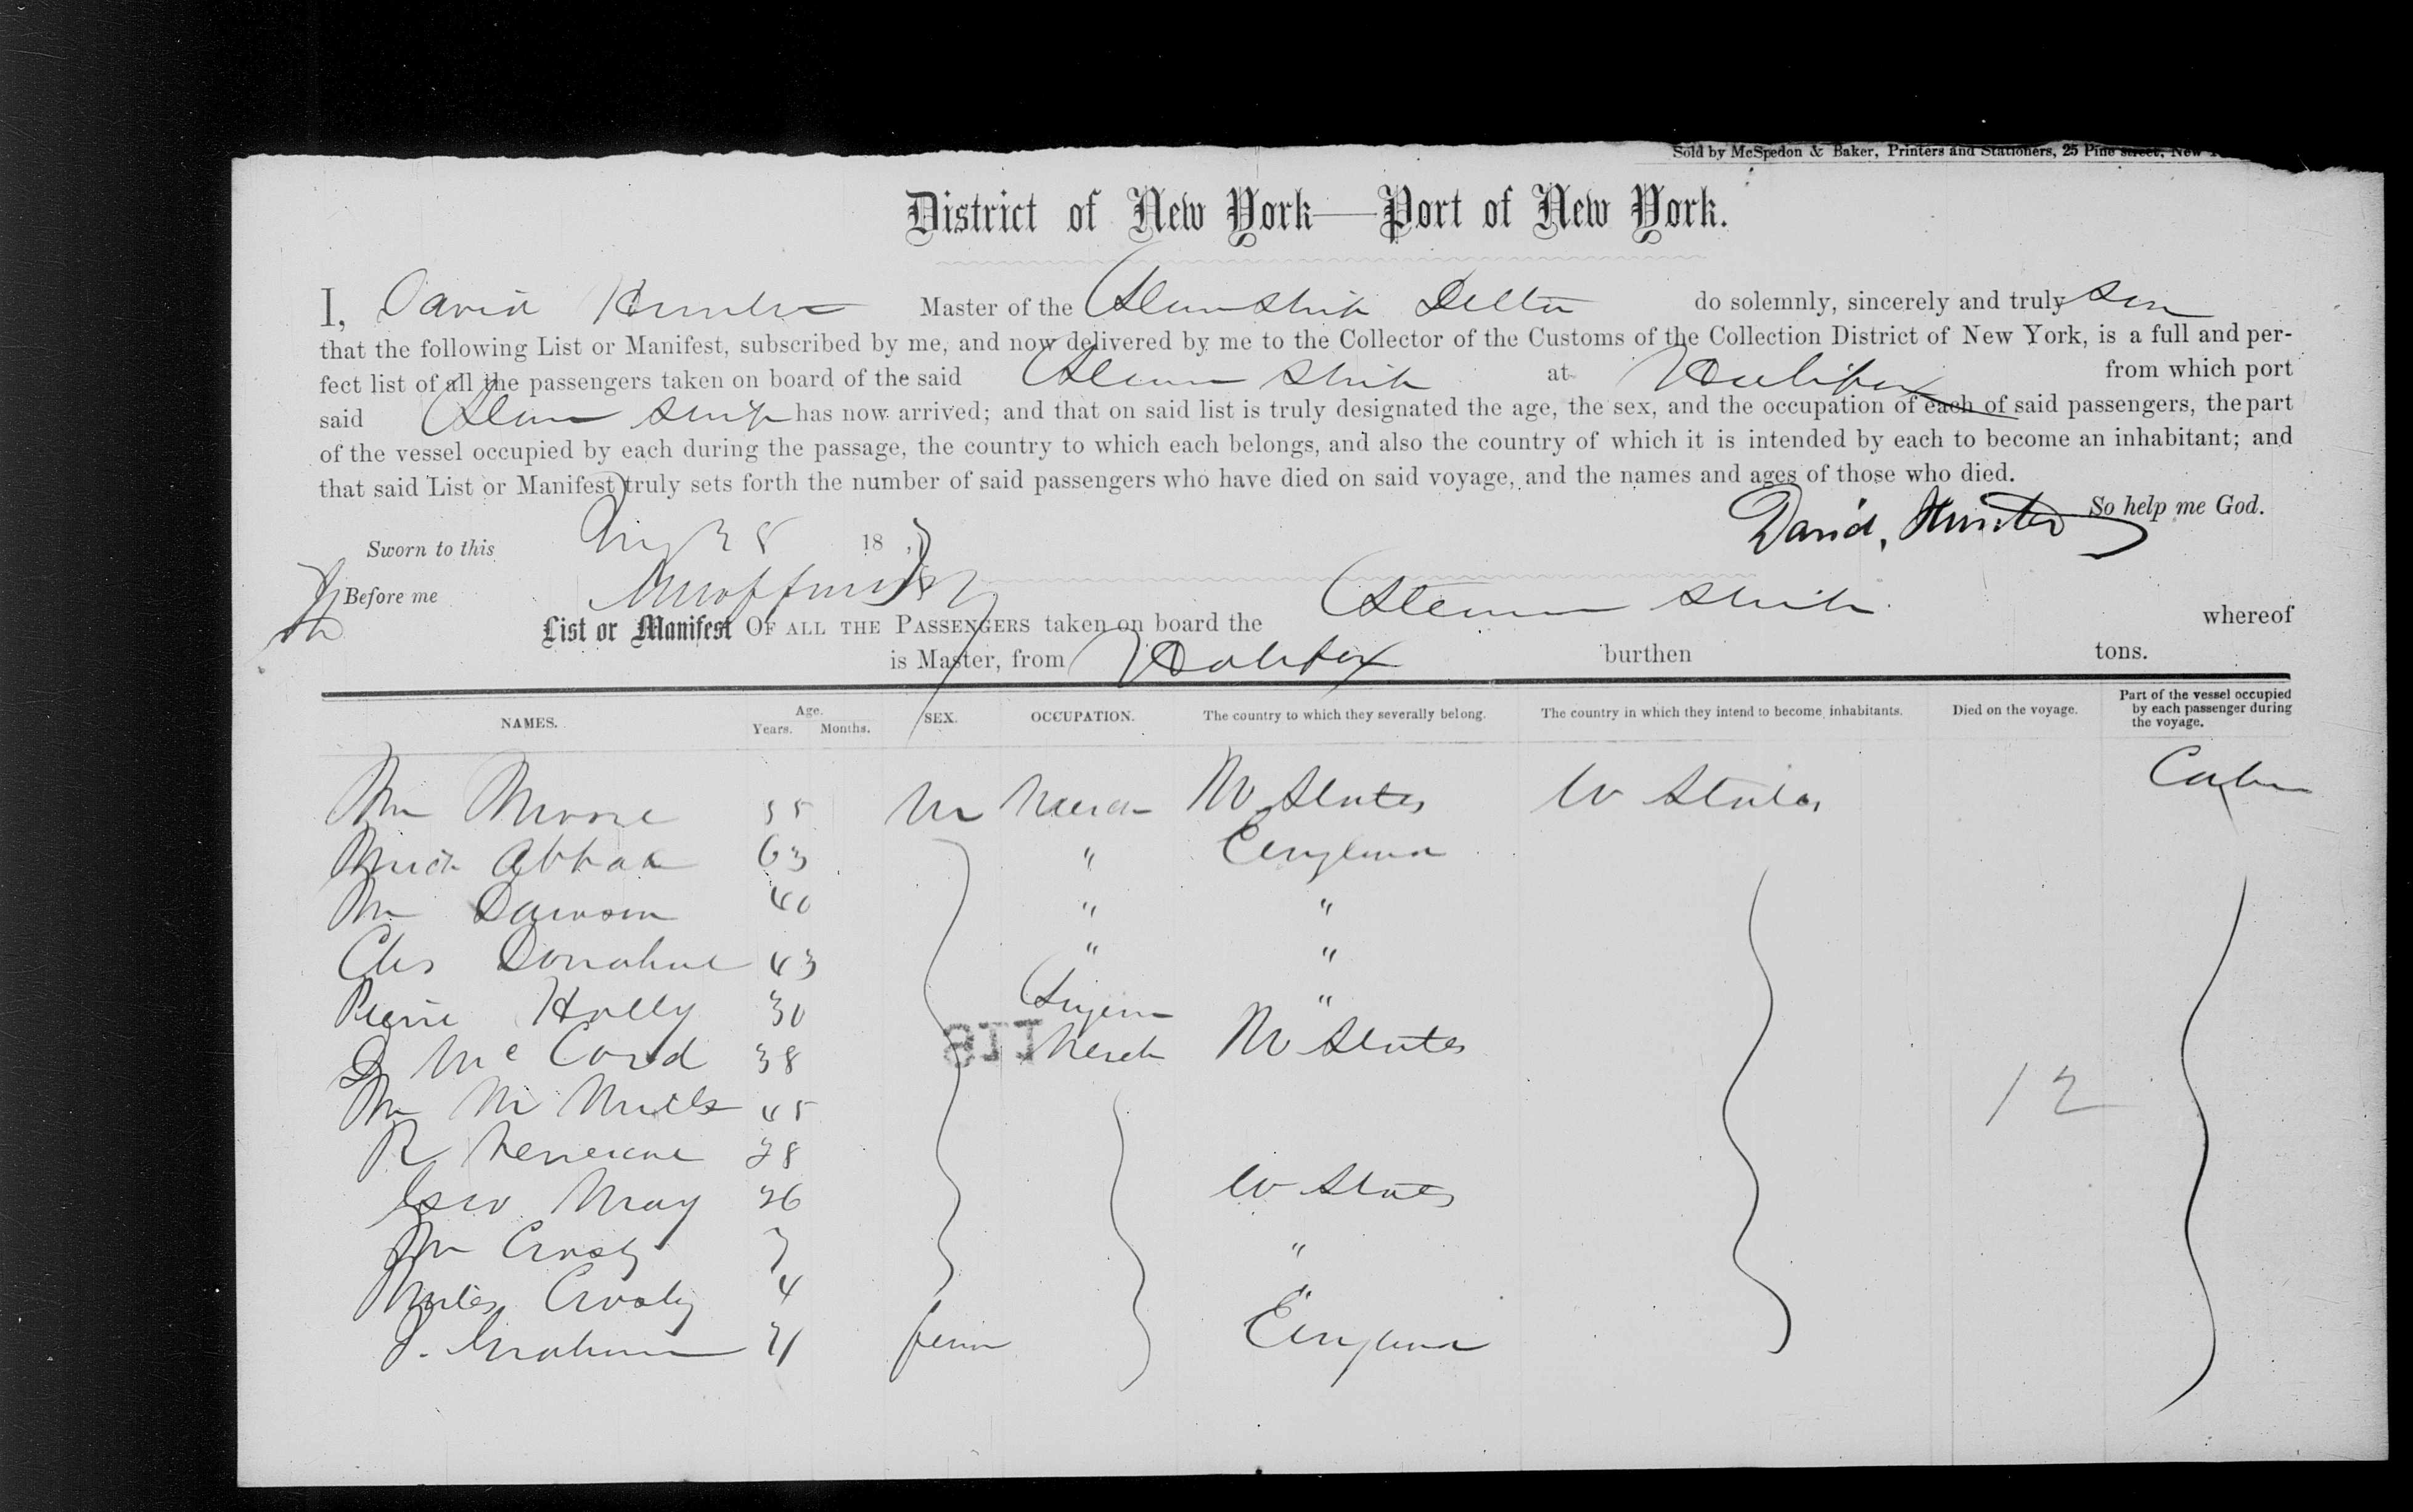 Sold by McSpedon & Baker, Printers and Stationers, 25 Pine street, New
District of New York—Port of New York.
I, David Hunter Master of the Steam Ship Delta do solemnly, sincerely and truly
that the following List or Manifest, subscribed by me, and now delivered by me to the Collector of the Customs of the Collection District of New York, is a full and per-
fect list of all the passengers taken on board of the said Steam Ship at Halifax from which port
said Steam Ship has now arrived; and that on said list is truly designated the age, the sex, and the occupation of each of said passengers, the part
of the vessel occupied by each during the passage, the country to which each belongs, and also the country of which it is intended by each to become an inhabitant; and
that said List or Manifest truly sets forth the number of said passengers who have died on said voyage, and the names and ages of those who died.
David, Hunter So help me God.
Sworn to this 28 18
Before me
List or Manifest OF ALL THE PASSENGERS taken on board the Steam Ship whereof
is Master, from Halifax burthen tons.
NAMES. Age. Years. Months. SEX. OCCUPATION. The country to which they severally belong. The country in which they intend to become inhabitants. Died on the voyage. Part of the vessel occupied by each passenger during the voyage.
Wm Moore 35 M Merch U States U States Cabin
63 " England
Wm Dawson 40 " "
Chs Donahue 43 " "
Pierre Holly 30 "
D McCord 38 Merch U States
118
Wm M Mills 45 12
R 28
Geo May 26 U States
Wm Crosby 7 "
Crosby 4 "
J. Graham 21 fem England